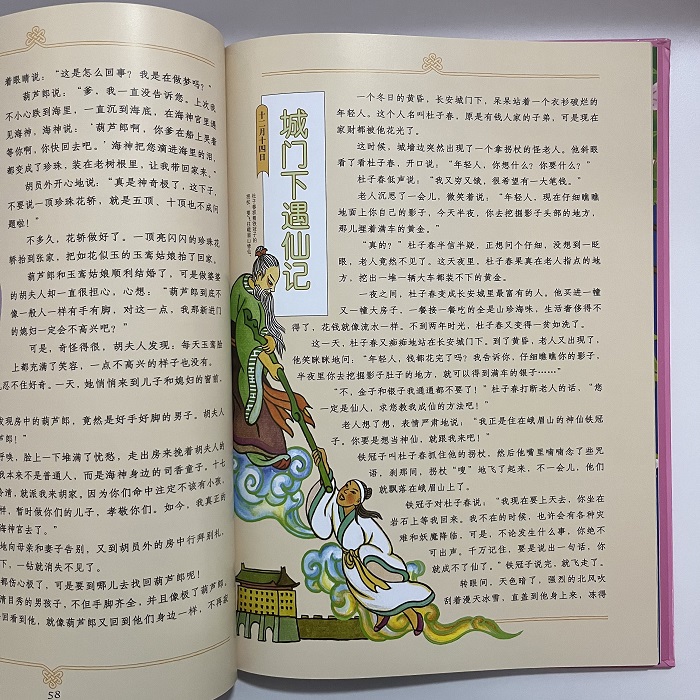 着眼睛说：“这是怎么回事？我是在做梦吗？”
葫芦郎说：“爹，我一直没告诉您。上次我
不小心跌到海里，一直沉到海底，在海神宫里遇
见海神，海神说：‘葫芦郎啊，你爹在船上哭着
等你啊，你快回去吧。’海神把您滴进海里的泪，
都变成了珍珠，装在老树根里，让我带回家来。”
胡员外开心地说：“真是神奇极了，这下子，
不要说一顶珍珠花轿，就是五顶、十顶也不成问
题啦！”
不多久，花轿做好了。一顶亮闪闪的珍珠花
轿抬到张家，把如花似玉的玉鸾姑娘抬了回家。
葫芦郎和玉鸾姑娘顺利结婚了。可是做婆婆
的胡夫人却一直很担心，心想：“葫芦郎到底不
像一般人一样有手有脚，对这一点，我那新进门
的媳妇一定会不高兴吧？”
可是，奇怪得很，胡夫人发现：每天玉鸾脸
上都充满了笑容，一点不高兴的样子也没有。
忍不住好奇。一天，她悄悄来到儿子和媳妇的窗前，
现房中的葫芦郎，竟然是好手好脚的男子。胡夫人
郎！”
呼唤，脸上一下堆满了忧愁，走出房来挽着胡夫人
我本来不是普通人，而是海神身边的司香童子。十七
请，就派我来胡家，因为你们命中注定不该有小孩，
样，暂时做你们的儿子，孝敬你们。如今，我真正的
海神宫去了。”
地向母亲和妻子告别，又到胡员外的房中行拜别礼，
一钻就消失不见了。
都伤心极了，可是要到哪儿去找回葫芦郎呢！
清目秀的男孩子，不但手脚齐全，并且像极了葫芦郎，
回看到他，就像葫芦郎又回到他们身边一样，不再寂
58
十二月十四日
城门下遇仙记
杜子春抓着铁冠子的
拐杖，要飞往峨眉山修仙。
一个冬日的黄昏，长安城门下，呆呆站着一个衣衫破烂的
年轻人。这个人名叫杜子春，原是有钱人家的子弟，可是现在
家财都被他花光了。
这时候，城墙边突然出现了一个拿拐杖的怪老人。他斜眼
看了看杜子春，开口说：“年轻人，你想什么？你要什么？”
杜子春低声说：“我又穷又饿，很希望有一大笔钱。”
老人沉思了一会儿，微笑着说：“年轻人，现在仔细瞧瞧
地面上你自己的影子，今天半夜，你去挖掘影子头部的地方，
那儿埋着满车的黄金。”
“真的？”杜子春半信半疑，正想问个仔细，没想到一眨
眼，老人竟然不见了。这天夜里，杜子春果真在老人指点的地
方，挖出一堆一辆大车都装不下的黄金。
一夜之间，杜子春变成长安城里最富有的人。他买进一幢
又一幢大房子，一餐接一餐吃的全是山珍海味，生活奢侈得不
得了，花钱就像流水一样。不到两年时光，杜子春又变得一贫如洗了。
这一天，杜子春又痴痴地站在长安城门下。到了黄昏，老人又出现了，
他笑眯眯地问：“年轻人，钱都花完了吗？我告诉你，仔细瞧瞧你的影子，
半夜里你去挖掘影子肚子的地方，就可以得到满车的银子……”
“不，金子和银子我通通都不要了！”杜子春打断老人的话，“您
一定是仙人，求您教我成仙的方法吧！”
老人想了想，表情严肃地说：“我正是住在峨眉山的神仙铁冠
子。你要是想当神仙，就跟我来吧！”
铁冠子叫杜子春抓住他的拐杖。然后他嘴里喃喃念了些咒
语，刹那间，拐杖“嗖”地飞了起来，不一会儿，他们
就飘落在峨眉山上了。
铁冠子对杜子春说：“我现在要上天去，你坐在
岩石上等我回来。我不在的时候，也许会有各种灾
难和妖魔降临。可是，不论发生什么事，你绝不
可出声。千万记住，要是说出一句话，你
就成不了仙了。”铁冠子说完，就飞走了。
转眼间，天色暗了，强烈的北风吹
刮着漫天冰雪，直盖到他身上来，冻得